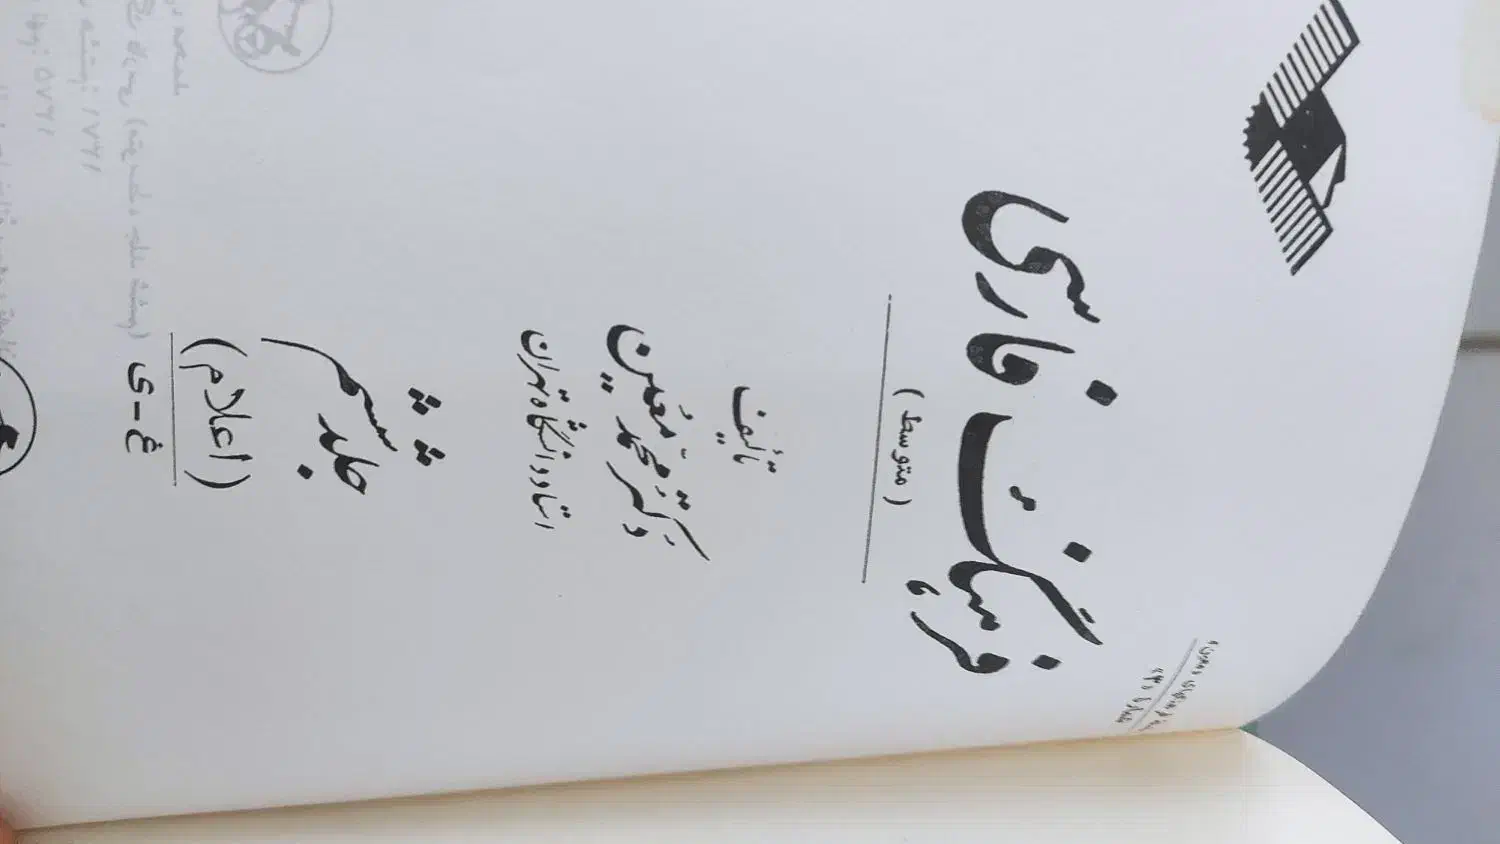 فرهنگ فارسی
(متوسط)
تألیف
دکتر محمد معین
استاد دانشگاه تهران
جلد ششم
(اعلام)
غ-ی